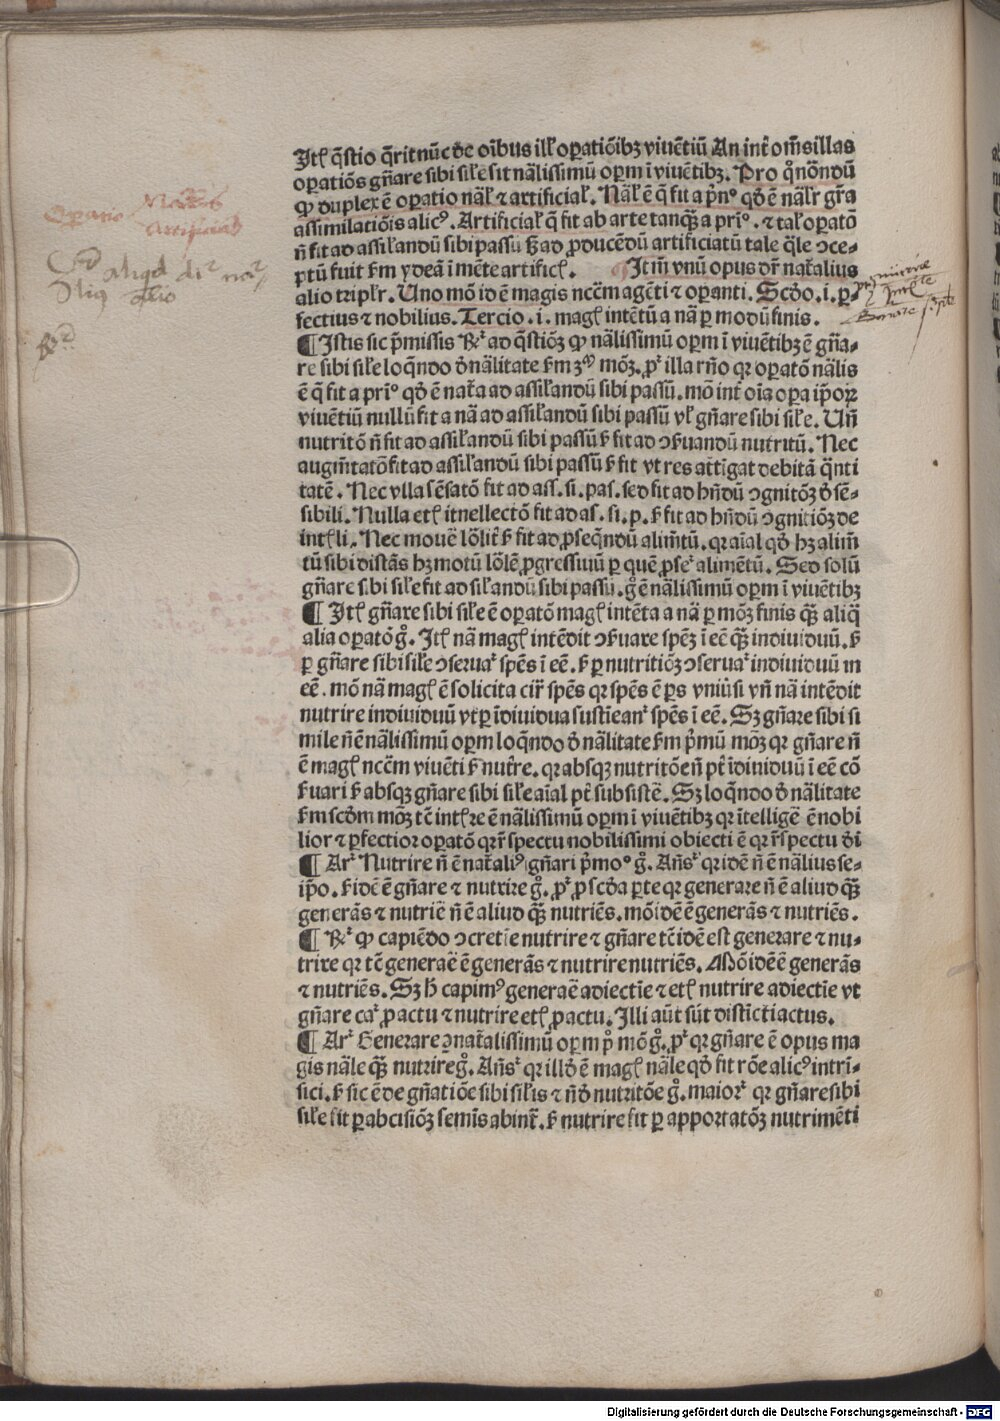 Itꝭ q̄stio q̄rit nūc de oībus illꝭ oꝑatiōibꝫ viuētiū An int̄ om̄s illas
oꝑatiōs gn̄are sibi sil̄e sit nālissimū oꝑm ī viuētibꝫ. Pro qͦ nōndū
ꝙ duplex ē oꝑatio nāl̄ ⁊ artificial̄. Nāl̄ ē q̄ fit a pn̄º qd̄ ē nāl̄r gr̄a
assimilatiōis alicꝰ. Artificial̄ q̄ fit ab arte tanqꝫ̄ a priº. ⁊ tal̄ oꝑatō
n̄ fit ad assil̄andū sibi passū sꝫ ad ꝓducēdū artificiatū tale q̄le ↄce-
ptū fuit ẜm ydeā ī mēte artificꝭ. Itm̄ vnū opus dr̄ nat̄alius
alio tripl̄r. Uno mō id ē magis nccm̄ agēti ⁊ oꝑanti. Scd̄o .i. ꝑ-
fectius ⁊ nobilius. Tercio .i. magꝭ intētū a nā ꝑ modū finis.
¶ Istis sic p̄missis Rͬ ad q̄stiōꝫ ꝙ nālissimū oꝑm ī viuētibꝫ ē gn̄a-
re sibi sil̄e loq̄ndo d̄ nālitate ẜm 3ᵐ mōꝫ. pͬ illa rn̄o qr oꝑatō nālis
ē q̄ fit a priº qd̄ ē nat̄a ad assil̄andū sibi passū. mō int̄ oīa oꝑa ip̄oꝝ
viuētiū nullū fit a nā ad assil̄andū sibi passū vl̄ gn̄are sibi sil̄e. Un̄
nutritō n̄ fit ad assil̄andū sibi passū ẜ fit ad ↄẜuandū nutritū. Nec
augm̄tatō fit ad assil̄andū sibi passū ẜ fit vt res attīgat debitā q̄nti
tatē. Nec vlla sēsatō fit ad ass. si. pas. sed fit ad hn̄dū ↄgnitōꝫ d̄ sē-
sibili. Nulla etꝭ itnellectō fit ad as. si. p. ẜ fit ad hn̄dū ↄgnitiōꝫ de
intꝭli. Nec mouē lōlit̄ ẜ fit ad ꝓseq̄ndū alim̄tū. qr aīal qd̄ hꝫ alim̄
tū sibi distās hꝫ motū lōlē ꝓgressiuū ꝑ quē ꝓseͬ alimētū. Sed solū
gn̄are sibi sil̄e fit ad sil̄andū sibi passū. gͦ ē nālissimū oꝑm ī viuētibꝫ
¶ Itꝭ gn̄are sibi sil̄e ē oꝑatō magꝭ intēta a nā ꝑ mōꝫ finis qꝫ̄ aliq̄
alia oꝑatō gͦ. Itꝭ nā magꝭ intēdit ↄẜuare spēꝫ ī eē qꝫ̄ indiuiduū. ẜ
ꝑ gn̄are sibi sil̄e ↄseruaͬ spēs ī eē. ẜ ꝑ nutritiōꝫ ↄseruaͬ indiuiduū in
eē. mō nā magꝭ ē solicita cir̄ spēs qr spēs ē ꝑs vniūsi vn̄ nā intēdit
nutrire indiuiduū vt ꝑ īdiuidua sustīeanͬ spēs ī eē. Sꝫ gn̄are sibi si
mile n̄ ē nālissimū oꝑm loq̄ndo d̄ nālitate ẜm p̄mū mōꝫ qr gn̄are n̄
ē magꝭ nccm̄ viuēti ẜ nut̄re. qr absqꝫ nutritōe n̄ pt̄ īdiuiduū ī eē cō
ẜuari ẜ absqꝫ gn̄are sibi sil̄e aīal pt̄ subsistē. Sꝫ loq̄ndo d̄ nālitate
ẜm scd̄m mōꝫ tē intꝭre ē nālissimū oꝑm ī viuētibꝫ qr ītelligē ē nobi
lior ⁊ ꝑfectior oꝑatō qr r̄spectu nobilissimi obiecti ē qr r̄spectu di
¶ Arͬ Nutrire n̄ ē nat̄aliꝰ gn̄ari p̄moº gͦ. An̄sͬ qr idē n̄ ē nālius se-
ip̄o. ẜ idē ē gn̄are ⁊ nutrire gͦ. pͬ ꝓ scd̄a ꝑte qr generare n̄ ē aliud qꝫ̄
generās ⁊ nutriē n̄ ē aliud qꝫ̄ nutriēs. mō idē ē generās ⁊ nutriēs.
¶ Rͬ ꝙ capiēdo ↄcretīe nutrire ⁊ gn̄are tē idē est generare ⁊ nu-
trire qr tē generaē ē generās ⁊ nutrire nutriēs. Mō idē ē generās
⁊ nutriēs. Sꝫ h̄ capimꝰ generaē adiectīe ⁊ etꝭ nutrire adiectīe vt
gn̄are caͬ ꝓ actu ⁊ nutrire etꝭ ꝓ actu. Illi aūt sūt distīcti actus.
¶ Arͬ Generare ꝫ nat̄alissimū oꝑm pͦ mō gͦ. pͬ qr gn̄are ē opus ma
gis nāle qꝫ̄ nutrire gͦ. An̄sͬ qr illd̄ ē magꝭ nāle qd̄ fit rōe alicꝰ intrī-
sici. ẜ sic ē de gn̄atiōe sibi sil̄is ⁊ n̄ d̄ nutritōe gͦ. maiorͬ qr gn̄are sibi
sil̄e fit ꝑ abcisiōꝫ semīs ab int̄. ẜ nutrire fit ꝑ apportatōꝫ nutrimēti
Operatio Naturalis
Artificialis
Digitalisierung gefördert durch die Deutsche Forschungsgemeinschaft - DFG